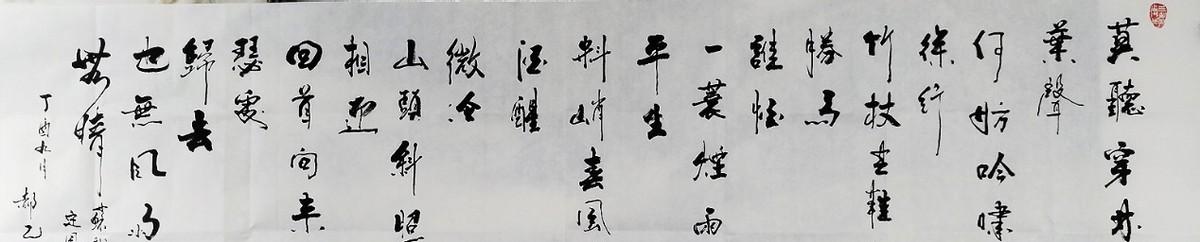 莫聽穿林
葉聲
何妨吟嘯
徐行
竹杖芒鞋
勝馬
誰怪
一蓑煙雨
平生
料峭春風
酒醒
微冷
山頭斜照
相迎
回首向來
瑟處
歸去
也無風雨
無晴
蘇軾
定風
丁酉九月
郝乙